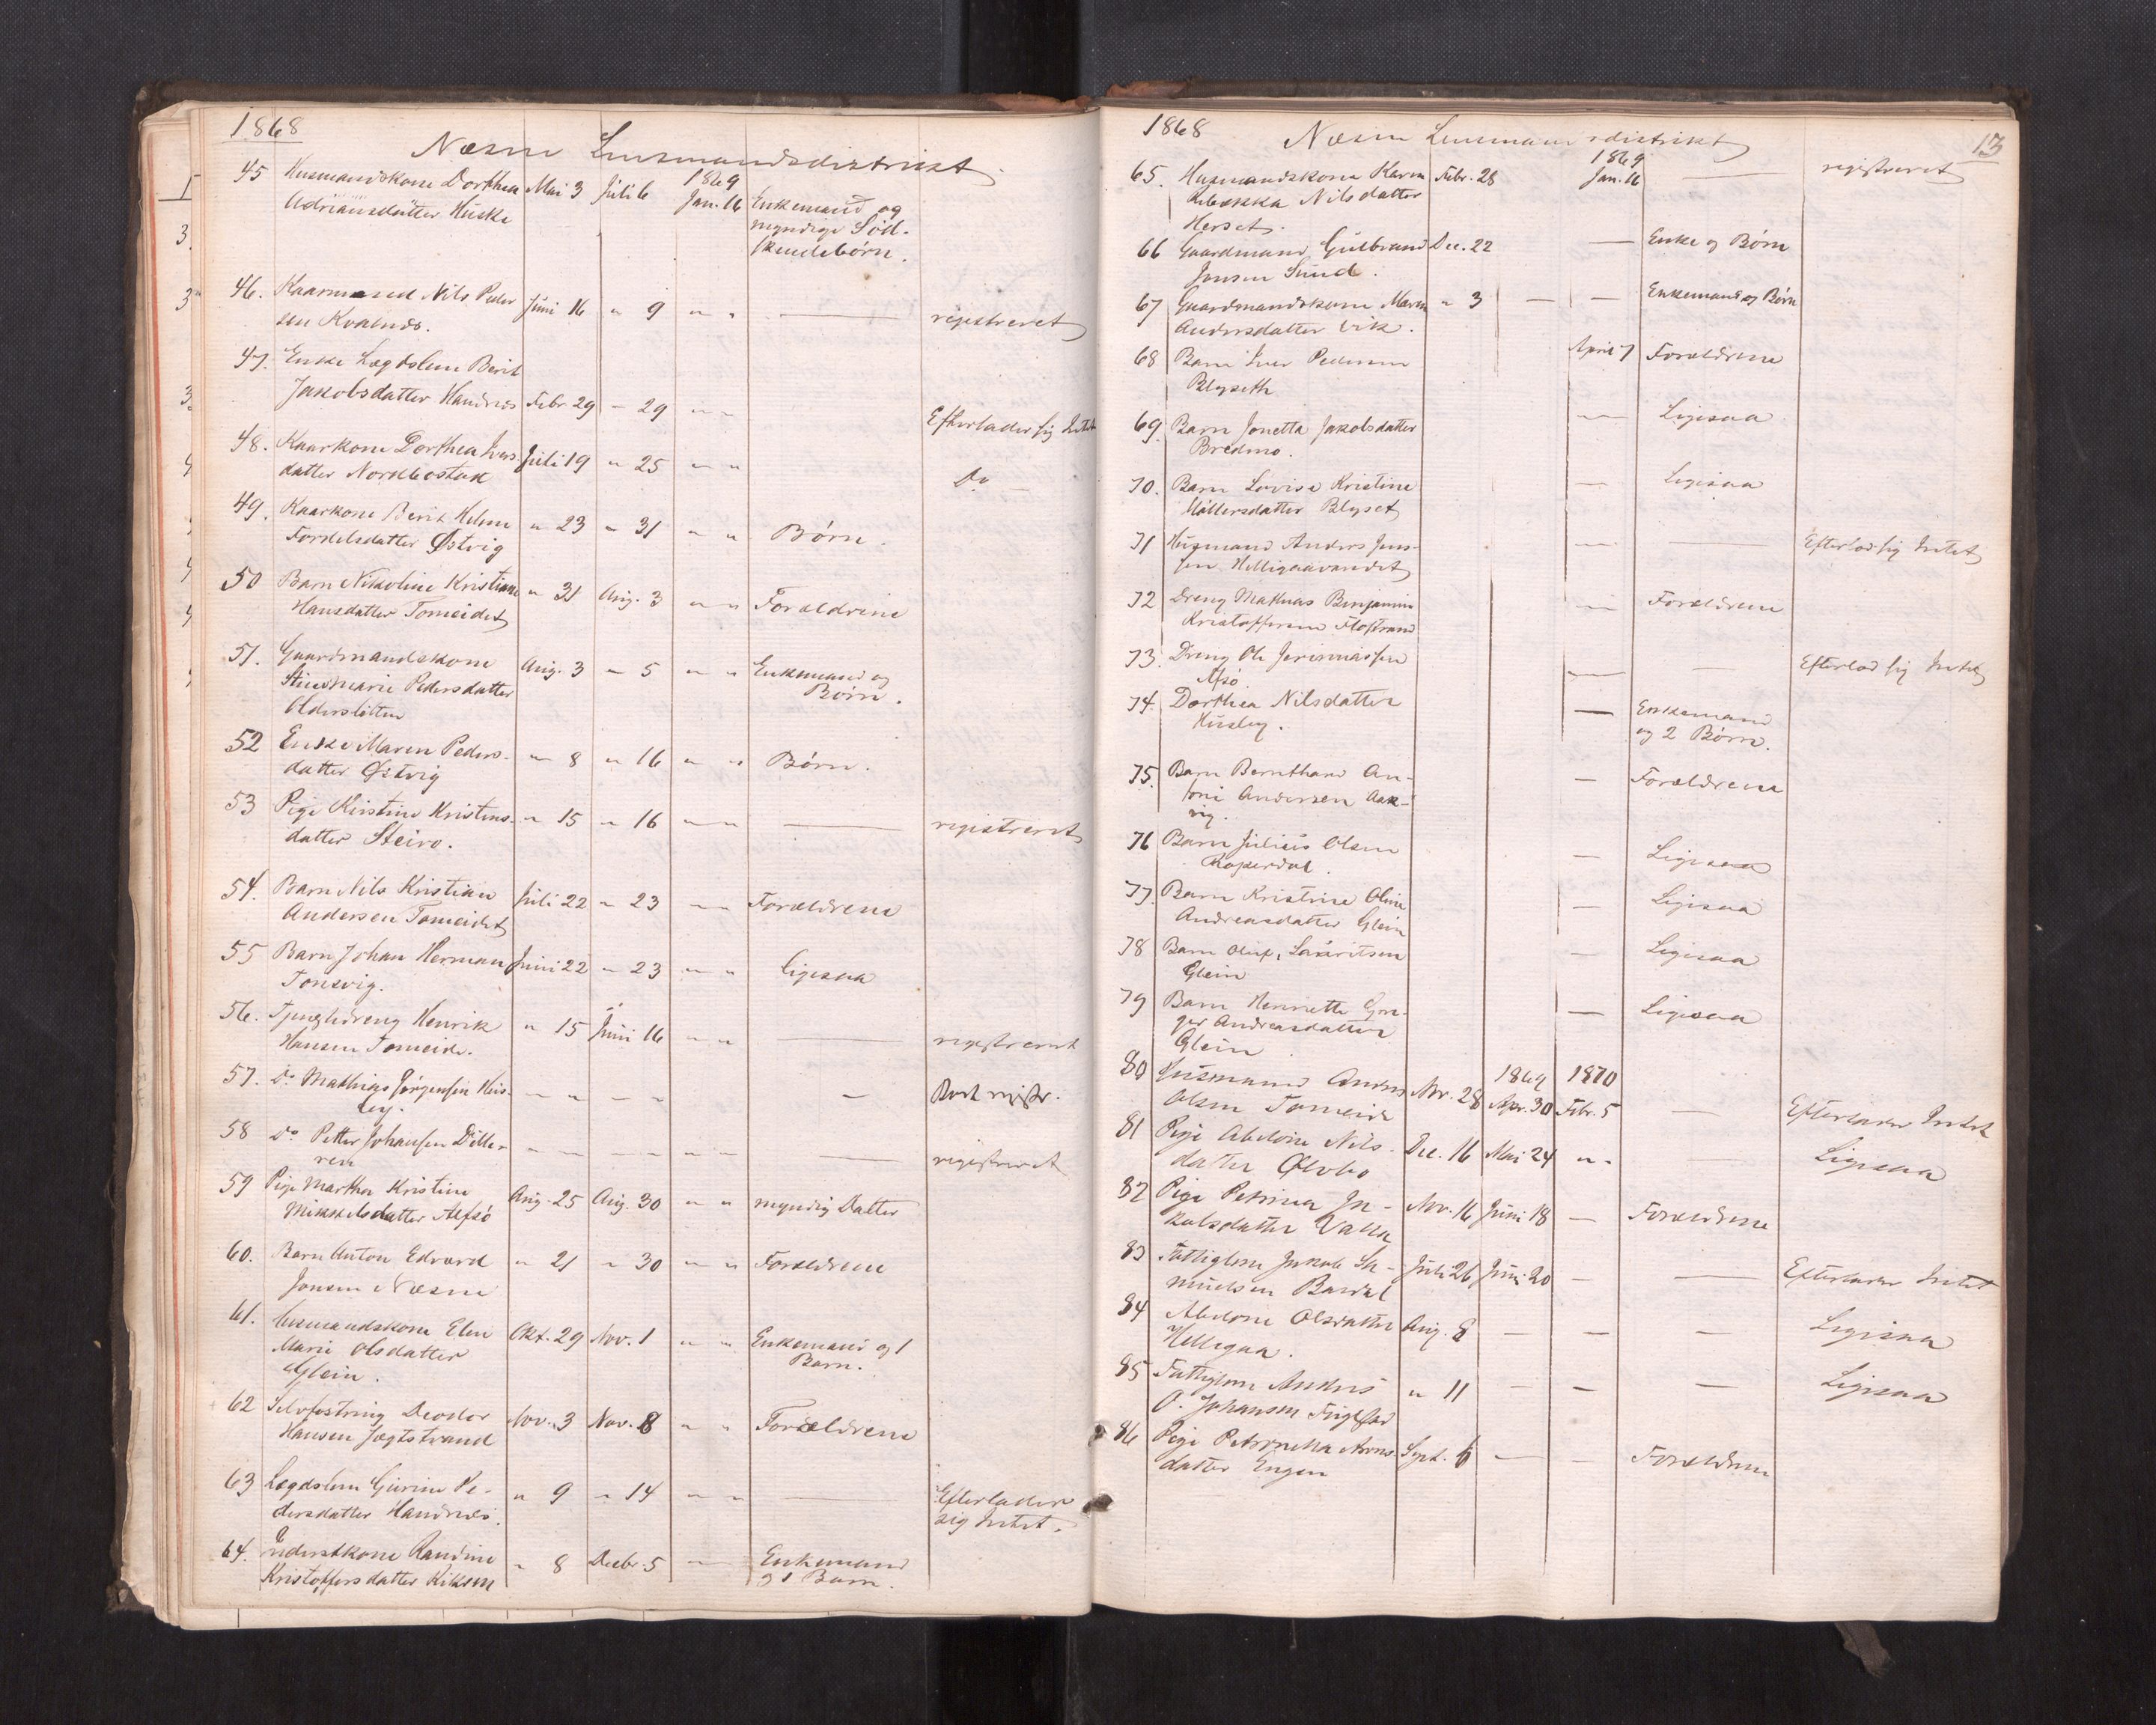 1868
Næsne Lensmandsdistrikt
45 Husmandskone Dorthea Mai 3 Juli 6 1869 Jan. 16 Enkemand og
Adriansdatter Huske myndige Sød-
skendebørn.
46. Kaarmand Nils Peder Juni 16 " 9 " " — registreret
sen Kvalnes.
47. Enke Lægdslem Berit
Jakobsdatter Handnes Febr 29 - 29 " " Efterlader sig Intet
48. Kaarkone Dorthea Ivers- Juli 19 " 25 " " Do —
datter Nordbostad
49. Kaarkone Berit Helene " 23 " 31 " " Børn.
Fordelsdatter Østvig
50 Barn Nikoline Kristiane " 31 Aug. 3 " " Forældrene
Hansdatter Tomeidet
51. Gaardmandskone Aug. 3 " 5 " " Enkemand og
Stine Marie Pedersdatter Børn.
Oldersletten
52 Enke Maren Peders- " 8 " 16 " " Børn.
datter Østvig
53 Pige Kirstine Kristens- " 15 " 16 " " — registreret
datter Steiro.
54. Barn Nils Kristian Juli 22 " 23 " " Forældrene
Andersen Tomeidet
55 Barn Johan Herman Juni 22 " 23 " " ligesaa
Tonsvig.
56. Tjenestedreng Henrik " 15 Juni 16 " " — registreret
Hansen Tomeide.
57. Do Mathias Jørgensen Hus- " " " " — Bort registr.
by.
58 Do Petter Johansen Dille- " " " " " " — registreret
ren
59 Pige Martha Kristine Aug. 25 Aug. 30 " " myndig Datter
Mikkelsdatter Alfsö
60. Barn Anton Edvard " 21 " 30 " " Forældrene
Jonsen Næsne
61. Husmandskone Elen Okt. 29 Nov. 1 " " Enkemand og 1
Marie Olsdatter Barn.
Glein.
62 Selvfostring Deodor Nov. 3 Nov. 8 " " Forældrene
Hansen Jægtstrand
63 Lægdslem Gurine Pe- " 9 " 14 " " — Efterlader
dersdatter Handnes. sig Intet.
64. Inderstkone Randine " 8 Decbr. 5 " Enkemand
Kristoffersdatter og 1 Barn.
1868
Næsne Lensmandsdistrikt
13
65. Husmandskone Karen Febr. 28 1869 Jan. 16 — registreret
Rebekka Nilsdatter
Herset.
66 Gaardmand Gulbrand Dec. 22 — Enke og Børn
Jonsen Sund.
67 Gaardmandskone Maren " 3 — — Enkemand og Børn
Andersdatter Vik.
68 Barn Iver Pedersen April 7 Forældrene
Blyseth
69. Barn Jonetta Jakobsdatter — Ligesaa
Bredmo.
70. Barn Lovise Kristine — Ligesaa
Møllersdatter Blyset
71 Husmand Anders Jens- — — Efterlod sig Intet
sen Helligaavandet
72 Dreng Mathias Benjamin — Forældrene
Kristoffersen Flostrand
73. Dreng Ole — — Efterlod sig Intet
Alsö
74. Dorthea Nilsdatter — Enkemand
Husby. og 2 Børn.
75. Barn Bernthard An- — Forældrene
toni Andersen Aak-
vig.
76 Barn Julius Olsen — Ligesaa
77. Barn Kristine Oline — Ligesaa
Andreasdatter Glein
78 Barn Oluf Lauritsen — Ligesaa
Glein
79 Barn Henriette — Ligesaa
Andreasdatter
Glein
80 Husmand Anders Nov. 28 1869 Apr. 30 1870 Febr. 5 — Efterlader Intet
Olsen Tomeide
81 Pige Abelone Nils- Dec. 16 Mai 24 " " — Ligesaa
datter
82 Pige Petrina Ja- Nov. 16 Juni 18 — Forældrene
kobsdatter Valla
83 Fattiglem Jakob Sa- Juli 26 Juni 20 — — Efterlader Intet
muelsen Bardal
84 Abelone Olsdatter Aug. 8 — — — Ligesaa
Helligaa.
85 Fattiglem Anders " 11 — — — Ligesaa
O. Johansen
86 Pige Petronella Arns- Sept. 6 — — Forældrene
datter Engen